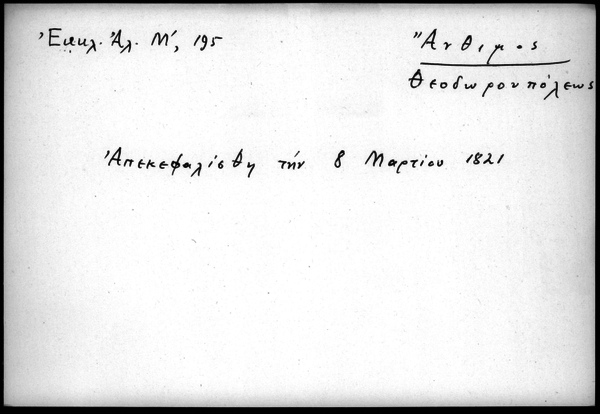 Ἐκκλ. Ἀλ. Μ΄, 195
Ἄνθιμος
Θεοδωρουπόλεως
Ἀπεκεφαλίσθη τήν 8 Μαρτίου 1821